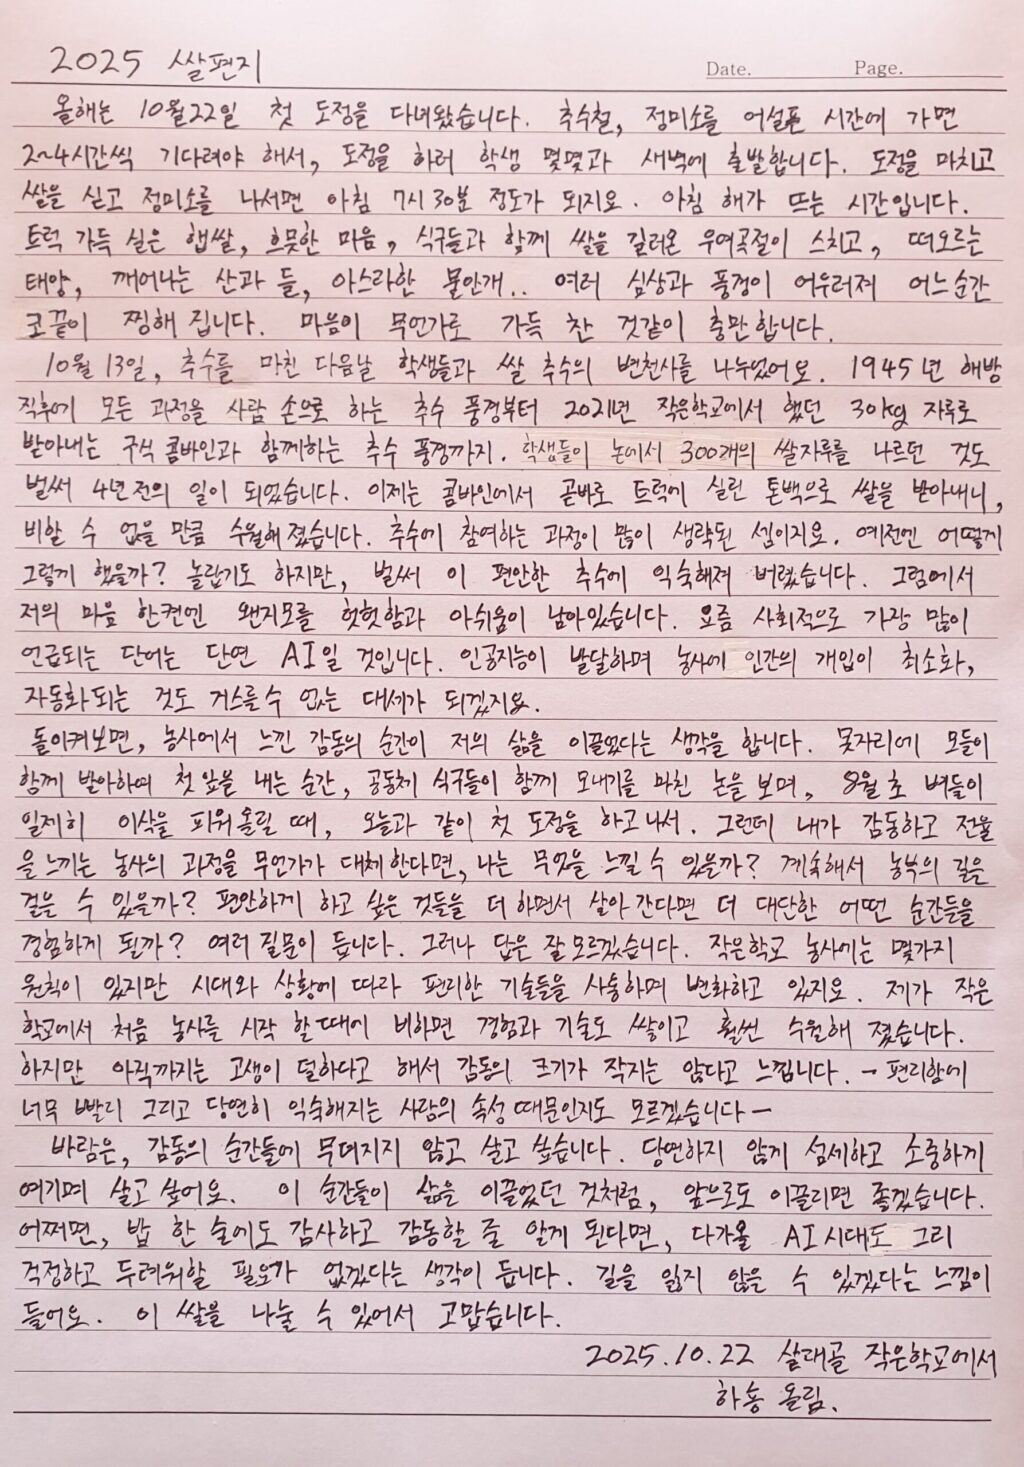 2025 쌀편지
Date. Page.
올해는 10월22일 첫 도정을 다녀왔습니다. 추수철, 정미소를 어설픈 시간에 가면
2~4시간씩 기다려야 해서, 도정을 하러 학생 몇몇과 새벽에 출발합니다. 도정을 마치고
쌀을 싣고 정미소를 나서면 아침 7시 30분 정도가 되지요. 아침 해가 뜨는 시간입니다.
트럭 가득 실은 햅쌀, 흐뭇한 마음, 식구들과 함께 쌀을 길러온 우여곡절이 스치고, 떠오르는
태양, 깨어나는 산과 들, 아스라한 물안개.. 여러 심상과 풍경이 어우러져 어느순간
코끝이 찡해 집니다. 마음이 무언가로 가득 찬 것같이 충만합니다.
10월 13일, 추수를 마친 다음날 학생들과 쌀 추수의 변천사를 나누었어요. 1945년 해방
직후에 모든 과정을 사람 손으로 하는 추수 풍경부터 2021년 작은학교에서 했던 30kg 자루로
받아내는 구식 콤바인과 함께하는 추수 풍경까지. 학생들이 논에서 300개의 쌀자루를 나르던 것도
벌써 4년 전의 일이 되었습니다. 이제는 콤바인에서 곧바로 트럭에 실린 톤백으로 쌀을 받아내니,
비할 수 없을 만큼 수월해 졌습니다. 추수에 참여하는 과정이 많이 생략된 셈이지요. 예전엔 어떻게
그렇게 했을까? 놀랍기도 하지만, 벌써 이 편안한 추수에 익숙해져 버렸습니다. 그럼에서
저의 마음 한켠엔 왠지모를 헛헛함과 아쉬움이 남아있습니다. 요즘 사회적으로 가장 많이
언급되는 단어는 단연 AI일 것입니다. 인공지능이 발달하며 농사에 인간의 개입이 최소화,
자동화되는 것도 거스를수 없는 대세가 되겠지요.
돌이켜보면, 농사에서 느낀 감동의 순간이 저의 삶을 이끌었다는 생각을 합니다. 못자리에 모들이
함께 발아하여 첫 잎을 내는 순간, 공동체 식구들이 함께 모내기를 마친 논을 보며, 8월 초 벼들이
일제히 이삭을 피워올릴 때, 오늘과 같이 첫 도정을 하고나서. 그런데 내가 감동하고 전율
을 느끼는 농사의 과정을 무언가가 대체한다면, 나는 무엇을 느낄 수 있을까? 계속해서 농부의 길을
걸을 수 있을까? 편안하게 하고 싶은 것들을 더 하면서 살아 간다면 더 대단한 어떤 순간들을
경험하게 될까? 여러 질문이 듭니다. 그러나 답은 잘 모르겠습니다. 작은학교 농사에는 몇가지
원칙이 있지만 시대와 상황에 따라 편리한 기술들을 사용하며 변화하고 있지요. 제가 작은
학교에서 처음 농사를 시작 할 때에 비하면 경험과 기술도 쌓이고 훨씬 수월해 졌습니다.
하지만 아직까지는 고생이 덜하다고 해서 감동의 크기가 작지는 않다고 느낍니다. - 편리함에
너무 빨리 그리고 당연히 익숙해지는 사람의 속성 때문인지도 모르겠습니다 -
바람은, 감동의 순간들에 무뎌지지 않고 살고 싶습니다. 당연하지 않게 섬세하고 소중하게
여기며 살고 싶어요. 이 순간들이 삶을 이끌었던 것처럼, 앞으로도 이끌리면 좋겠습니다.
어쩌면, 밥 한 술에도 감사하고 감동할 줄 알게 된다면, 다가올 AI시대도 그리
걱정하고 두려워할 필요가 없겠다는 생각이 듭니다. 길을 잃지 않을 수 있겠다는 느낌이
들어요. 이 쌀을 나눌 수 있어서 고맙습니다.
2025.10.22 살대골 작은학교에서
하송 올림.